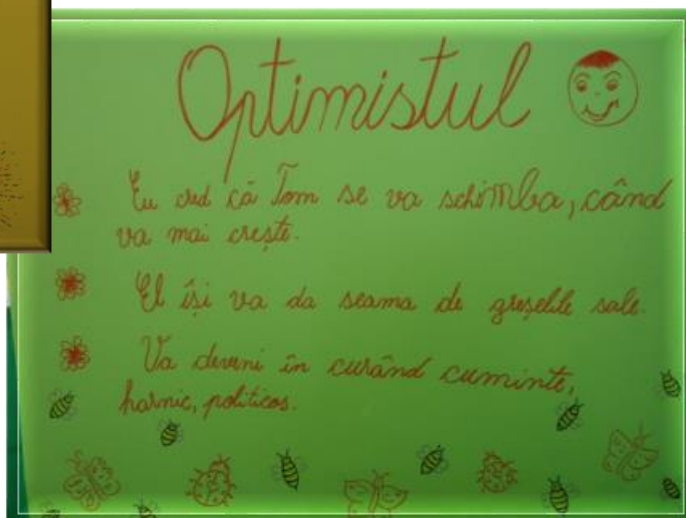 Optimistul
Eu cred că Tom se va schimba, când
va mai crește.
El își va da seama de greșelile sale.
Va deveni în curând cuminte,
harnic, politicos.